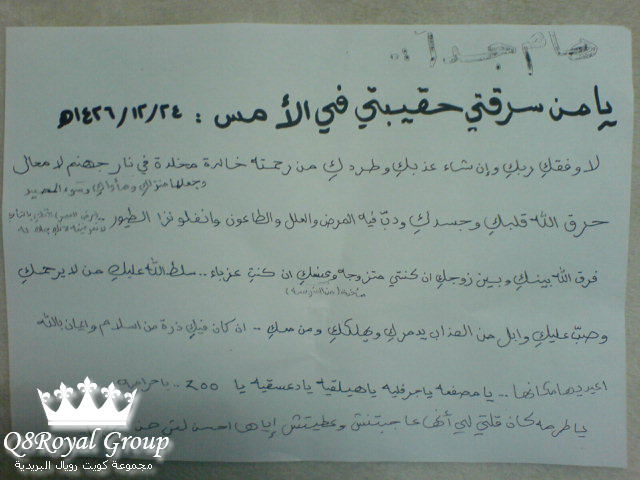 هام جداً ..
يا من سرقتي حقيبتي في الأمس : ١٤٢٦/١٢/٢٤هـ
لا وفقكِ ربكِ وإن شاء عذبكِ وطردكِ من رحمته خالدة مخلدة في نار جهنم لا محال
وجعلها منزلكِ ومأواكِ وسوء المصير
حرق الله قلبكِ وجسدكِ ودبّ فيه المرض والعلل والطاعون وانفلونزا الطيور ..
فرق الله بينكِ وبين زوجكِ ان كنتي متزوجه وعنسكِ ان كنتِ عزباء .. سلط الله عليكِ من لا يرحمكِ
وصبّ عليكِ وابل من العذاب يدمركِ ويهلككِ ومن معكِ .. ان كان فيكِ ذرة من اسلام وإيمان بالله
اعيديها مكانها .. يا مصفعه يا جرفليه يا هيلقيه يا دعسقيه يا ٢٥٥ .. يا حراميه
يا طرمه كان قلتي لي أنها عاجبتنش وعطيتش إياها احسن لش من
Q8Royal Group
مجموعة كويت رويال البريدية